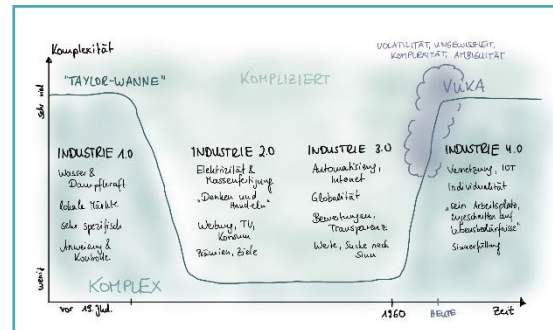 Komplexität
VOLATILITÄT, UNGEWISSHEIT,
KOMPLEXITÄT, AMBIGUITÄT
"TAYLOR-WANNE"
KOMPLIZIERT
VUKA
sehr viel
INDUSTRIE 1.0
Wasser &
Dampfkraft
lokale Märkte
sehr spezifisch
Anweisung &
Kontrolle
INDUSTRIE 2.0
Elektrizität &
Massenfertigung
"Denken und
Handeln"
Werbung, TV,
Konsum
Prämien, Ziele
INDUSTRIE 3.0
Automatisierung,
Internet
Globalität
Bewertungen,
Transparenz
Werte, Suche nach
Sinn
INDUSTRIE 4.0
Vernetzung, IOT
Individualität
"sein Arbeitsplatz,
zugeschnitten auf
Lebensbedürfnisse"
Sinnerfüllung
wenig
KOMPLEX
vor 19. Jhd.
1960
HEUTE
Zeit